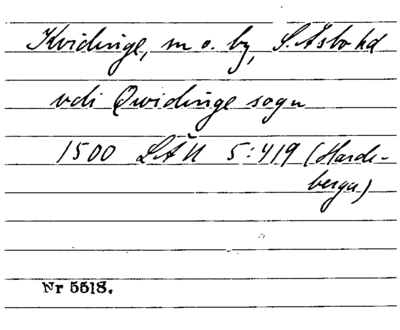 Kvidinge, sn o. by, S. Åsbo hd
vdi Qwidinge sogn
1500 LÄU 5:419 (Harde-
berga)
Nr 5518.